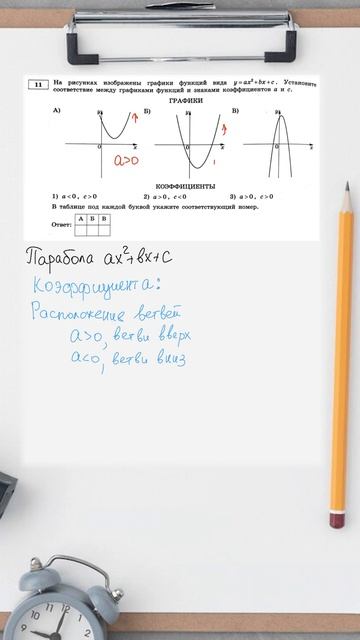 11 На рисунках изображены графики функций вида y=ax²+bx+c. Установите
соответствие между графиками функций и знаками коэффициентов a и c.
ГРАФИКИ
А) Б) В)
y y y
0 x 0 x 0 x
a>0
КОЭФФИЦИЕНТЫ
1) a<0, c>0 2) a>0, c<0 3) a>0, c>0
В таблице под каждой буквой укажите соответствующий номер.
А Б В
Ответ:
Парабола ax²+bx+c
Коэффициента:
Расположение ветвей
a>0, ветви вверх
a<0, ветви вниз
11 12 1
10
9
8
7 6 5